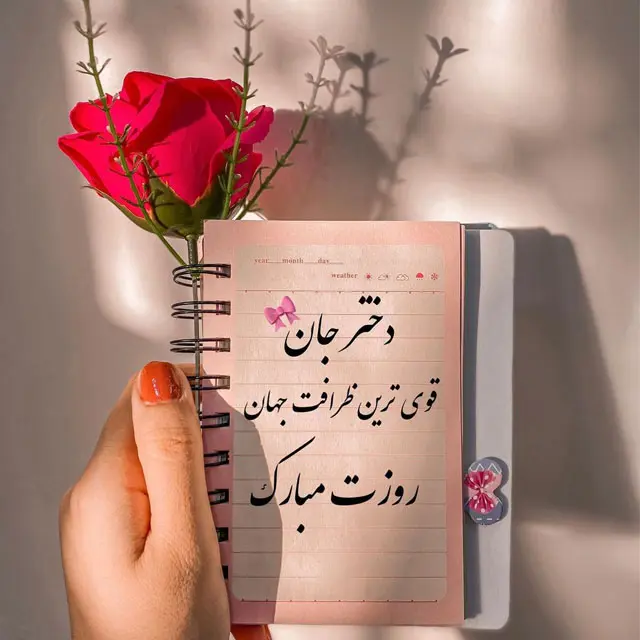 year.....month.....day.....
weather
دختر جان
قوی ترین ظرافت جهان
روزت مبارک